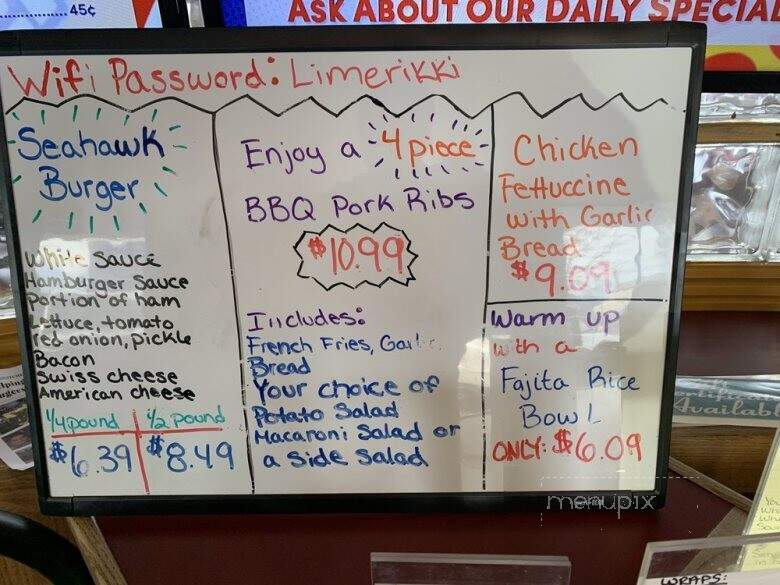 45¢
ASK ABOUT OUR DAILY SPECIAL
Wifi Password: Limerikki
Seahawk
Burger
White sauce
Hamburger Sauce
Portion of ham
Lettuce, tomato
red onion, pickle
Bacon
Swiss cheese
American cheese
1/4 pound 1/2 pound
$6.39 $8.49
Enjoy a 4 piece
BBQ Pork Ribs
$10.99
Includes:
French Fries, Garlic
Bread
Your choice of
Potato Salad
Macaroni Salad or
a side salad
Chicken
Fettuccine
with Garlic
Bread
$9.09
Warm up
with a
Fajita Rice
Bowl
ONLY: $6.09
menupix
Availabl
WRAPS: